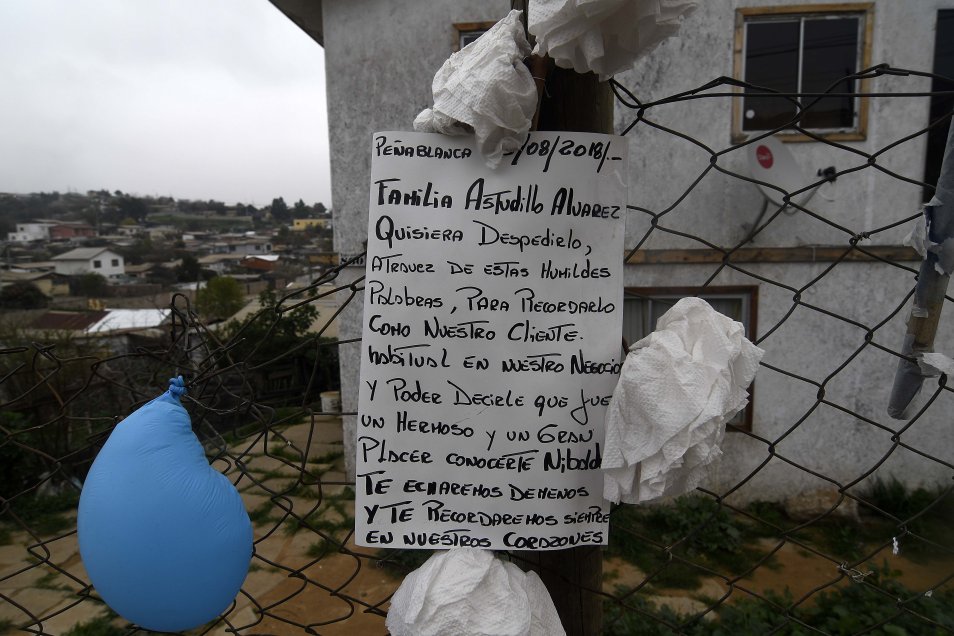 PEÑABLANCA /08/2018/.-
FAMILIA ASTUDILLO ALVAREZ
QUISIERA DESPEDIRLO,
ATRAVEZ DE ESTAS HUMILDES
PALABRAS, PARA RECORDARLO
COMO NUESTRO CLIENTE.
HABITUAL EN NUESTRO NEGOCIO
Y PODER DECIRLE QUE FUE
UN HERMOSO Y UN GRAN
PLACER CONOCERTE NIBALDO
TE ECHAREMOS DEMENOS
Y TE RECORDAREMOS SIEMPRE
EN NUESTROS CORAZONES